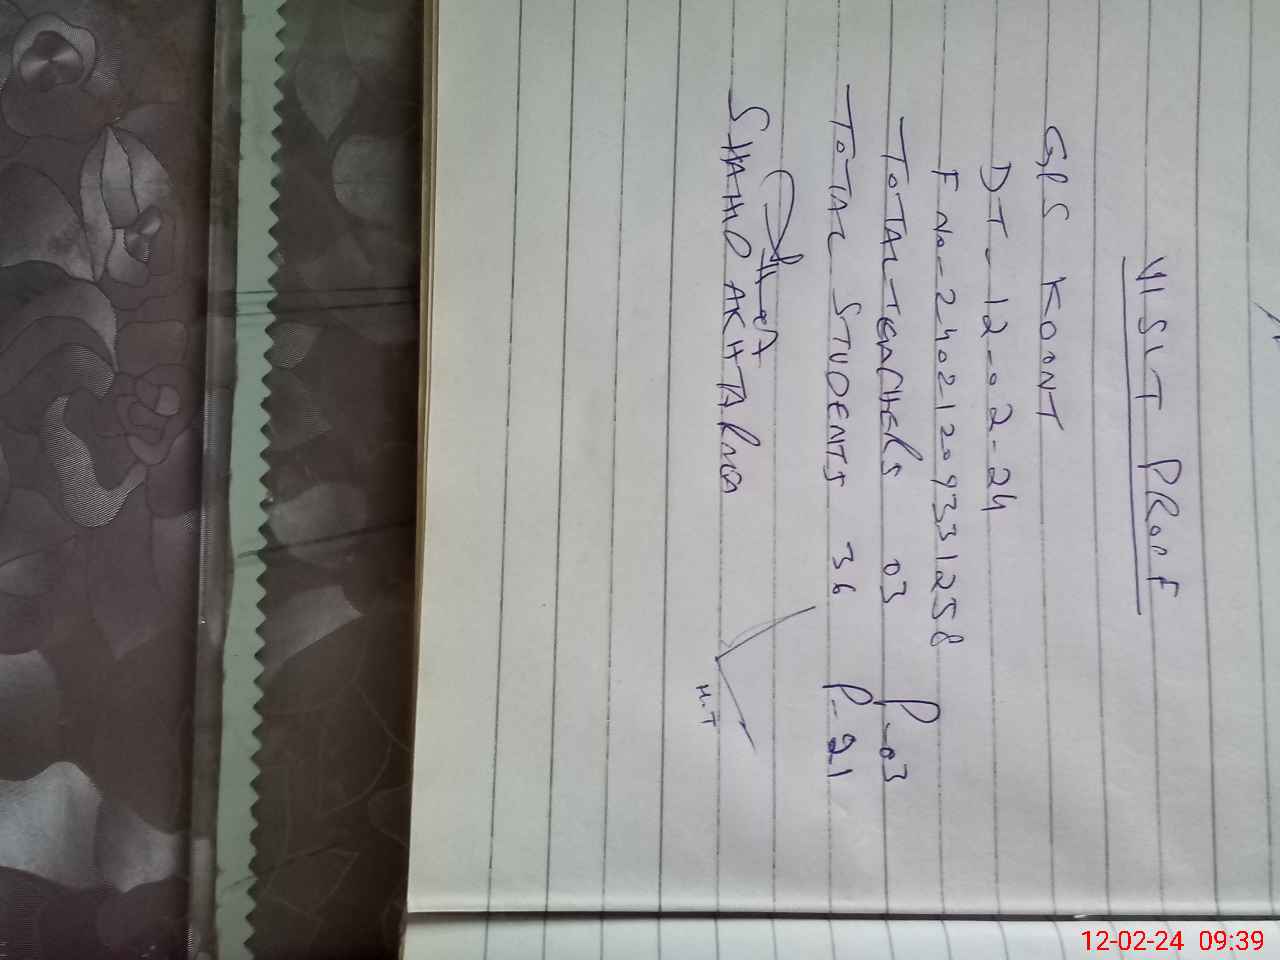 VISIT PROOF
GPS KOONT
DT- 12-02-24
F No- 24021209331258
TOTAL TEACHERS 03 P-03
TOTAL STUDENTS 36 P-21
SHAHID AKHTAR
H.T
12-02-24 09:39